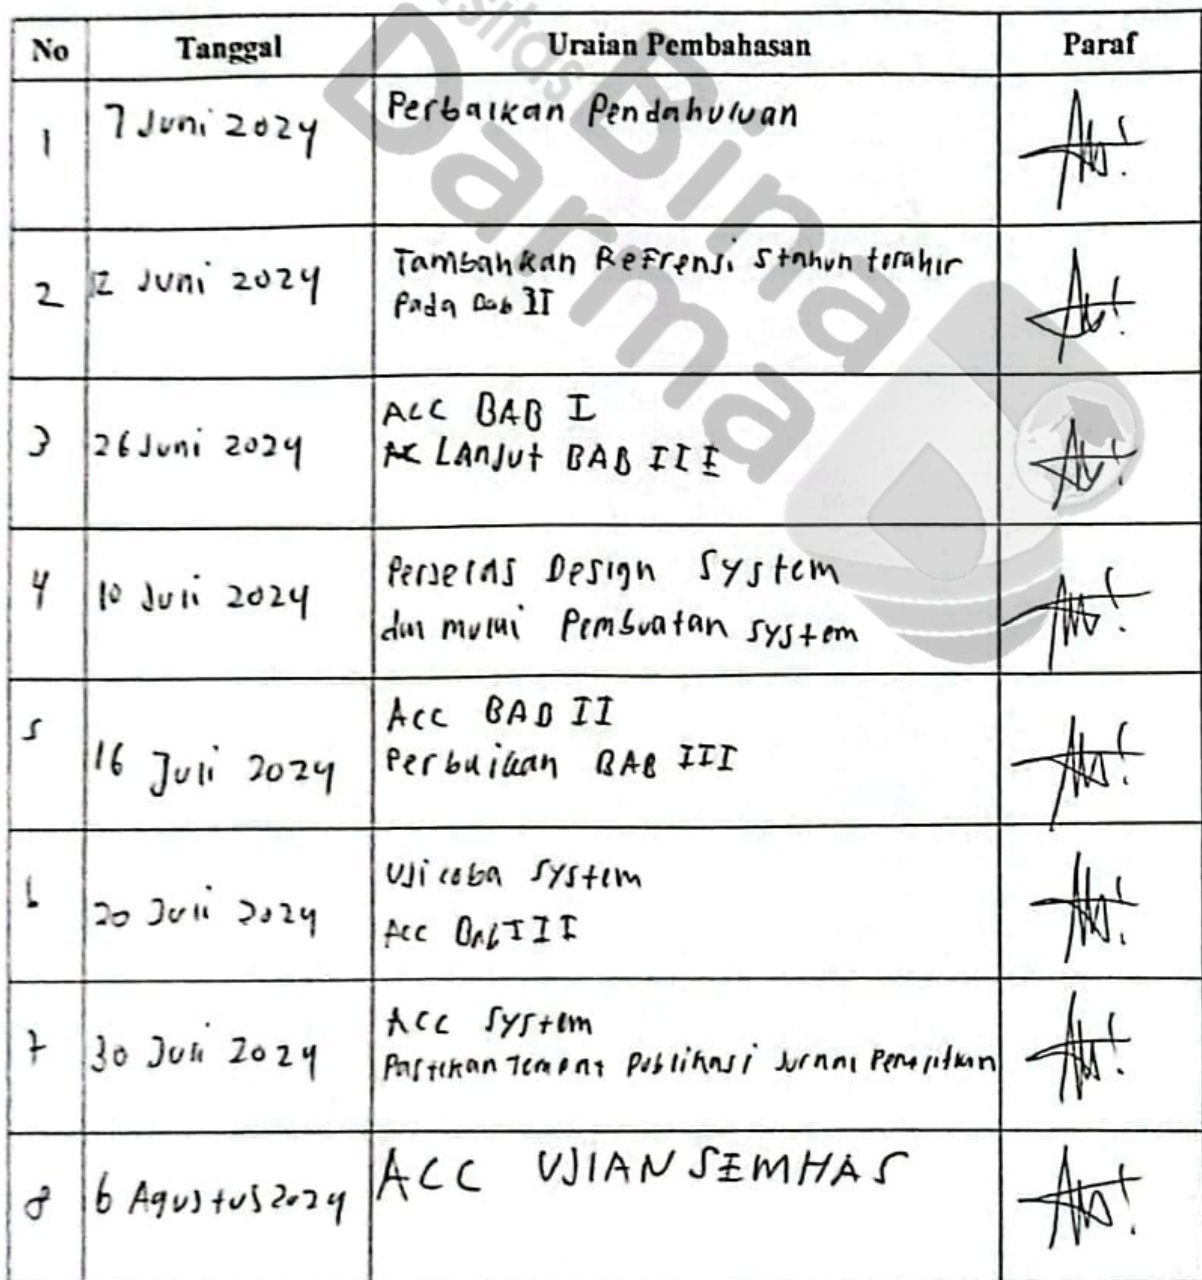 No Tanggal Uraian Pembahasan Paraf
1 7 Juni 2024 Perbaikan Pendahuluan
2 12 Juni 2024 Tambahkan Refrensi 5 tahun terahir
Pada Bab II
3 26 Juni 2024 ACC BAB I
Lanjut BAB III
4 10 Juli 2024 Perjelas Design System
dan mulai Pembuatan system
5 16 Juli 2024 Acc BAB II
Perbaikan BAB III
6 20 Juli 2024 Uji coba system
Acc Bab III
7 30 Juli 2024 Acc system
Pastikan Tempat Publikasi Jurnal Penelitian
8 6 Agustus 2024 ACC UJIAN SEMHAS
Bina
Darma